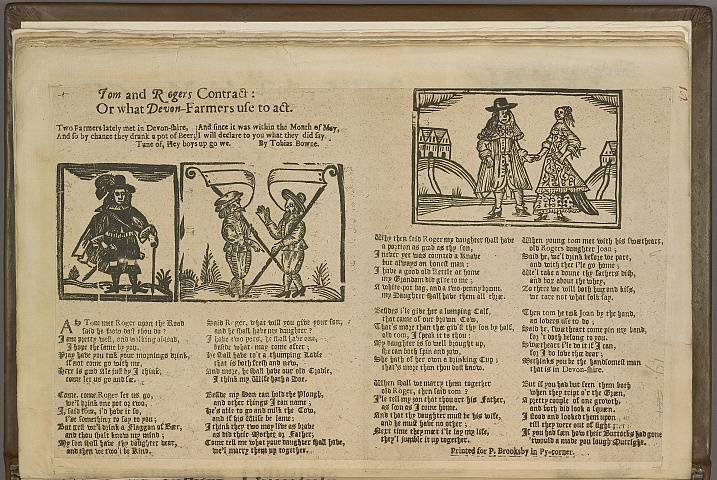 Tom and Rogers Contract:
Or what Devon-Farmers use to act.
Two Farmers lately met in Devon-shire,
And so by chance they drank a pot of Beer;
And since it was within the Month of May,
I will declare to you what they did say.
Tune of, Hey boys up go we. By Tobias Bowne.
As Tom met Roger upon the Road
said he how dost thou do?
I am pretty well, and walking abroad,
I hope the same by you.
Pray have you took your mornings drink,
if not come go with me,
Here is good Ale just by I think,
come let us go and see.
Come, come Roger let us go,
we'l drink one pot or two,
I, said Tom, I'd have it so,
I've something to say to you;
But first we'l drink a Flaggon of Beer,
and thou shalt know my mind;
My son shall have thy daughter dear,
and then we two'l be kind.
Said Roger, what will you give your son,
and he shall have my daughter?
I have two pots, he shall have one,
beside what may come after;
he shall have to't a thumping Ladle
that is both fresh and new,
And more, he shall have our old Cradle,
I think my Wife hath a
Beside my Son can hold the Plough,
and other things I can name;
He's able to go and milk the Cow,
and if his Wife be lame;
I think they two may live as brave
as did their Mother or Father;
Come tell me what your daughter shall have,
we'l marry them up together.
Why then said Roger my daughter shall have
a portion as good as thy son,
I never yet was counted a Knave
but always an honest man;
I have a good old Kettle at home
my Grandam did give to me;
A white-pot bag, and a two-penny
my Daughter shall have them all three.
Besides I'le give her a lumping Calf,
that came of our brown Cow,
That's more than the gift thy son by half,
old Tom, I speak it to thou;
My daughter is so well brought up,
she can both spin and sow,
She hath of her own a drinking Cup;
that's more than thou dost know.
When shall we marry them together
old Roger, then said Tom?
I'le tell my son that thou art his Father,
as soon as I come home.
And that thy daughter must be his wife,
and he must have no other;
Next time they meet i'le lay my life,
they'l jumble it up together.
When young Tom met with his sweetheart,
old Rogers daughter Joan;
Said he, we'l drink before we part,
and with thee i'le go home;
We'l take a count thy fathers dish,
and box about the whey,
To thee we will both hug and kiss,
we care not what folk say.
Then Tom he took Joan by the hand,
as lovers use to do;
Said he, sweetheart come pin my band,
for't doth belong to you.
Sweetheart i'le do it if I can,
for I do love thee dear;
Methinks you'r the handsomest man
that is in Devon-shire.
But if you had but seen them both
when they tript o're the Green,
A pretty couple of one growth,
and both did look a squeen.
I stood and looked them upon
till they were out of sight
If you had seen how their Buttocks had gone
twould a made you laugh Outright.
Printed for P. Brooksby in Py-corner.